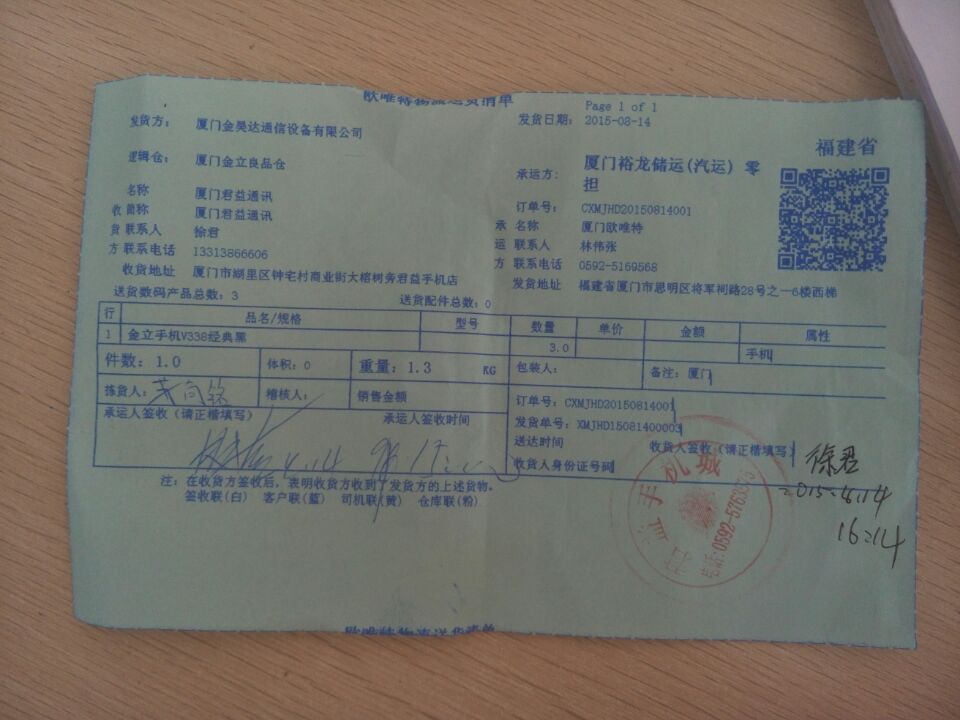 Page 1 of 1
发货方： 厦门金昊达通信设备有限公司
发货日期： 2015-08-14
福建省
逻辑仓： 厦门金立良品仓
承运方： 厦门裕龙储运(汽运) 零担
名称 厦门君益通讯
订单号： CXMJHD20150814001
收 简称 厦门君益通讯
承 名称 厦门欧唯特
货 联系人 徐君
运 联系人 林伟张
方 联系电话 13313866606
方 联系电话 0592-5169568
收货地址 厦门市湖里区钟宅村商业街大榕树旁君益手机店
发货地址 福建省厦门市思明区将军祠路28号之一6楼西梯
送货数码产品总数：3 送货配件总数：0
行 品名/规格 型号 数量 单价 金额 属性
1 金立手机V338经典黑 3.0 手机
件数：1.0 体积：0 重量：1.3 KG 包装人： 备注：厦门
拣货人： 稽核人： 销售金额
订单号：CXMJHD20150814001
承运人签收（请正楷填写） 承运人签收时间
发货单号：XMJHD15081400003
送达时间 收货人签收（请正楷填写） 徐君
收货人身份证号码
2015.8.14
16:14
注：在收货方签收后，表明收货方收到了发货方的上述货物。
签收联(白) 客户联(蓝) 司机联(黄) 仓库联(粉)
君益手机城
欧唯特物流送货清单